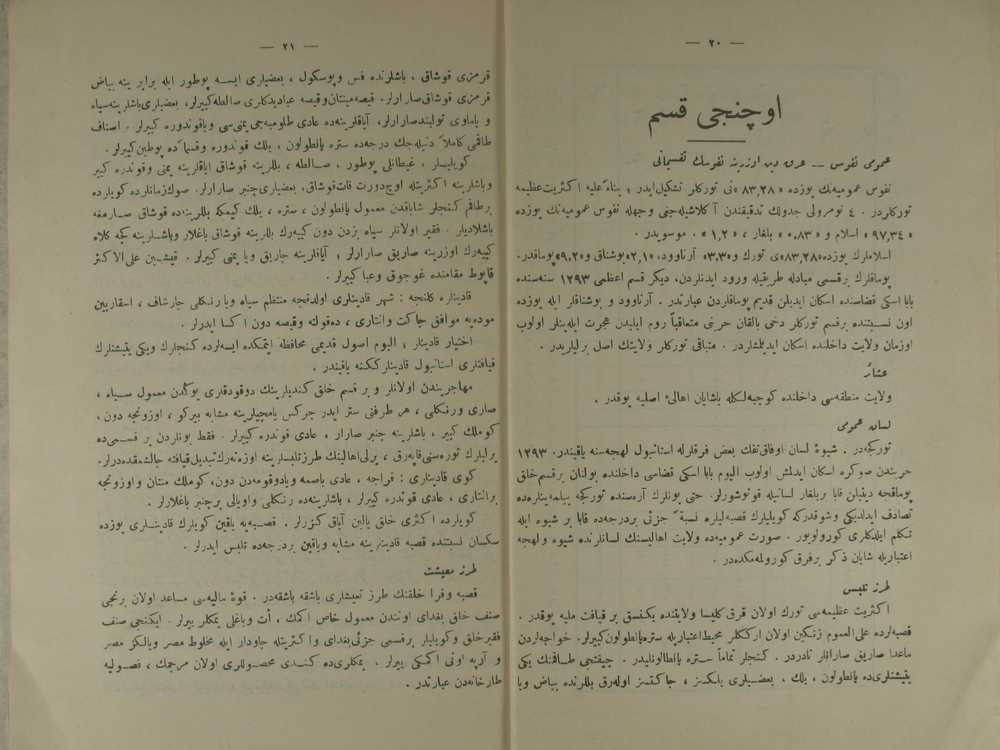 — ٢٠ —
اوچنجی قسم
عمومی نفوس — عرق ودین اوزرینه نفوسك تقسیماتی
نفوس عمومیه‌نك یوزده «٨٣,٢٨» نی توركلر تشكیل ایدر ؛ بناءً علیه اكثریت عظیمه
توركلردر . ٤ نومرولی جدولك تدقیقندن آكلاشیله‌جغی وجهله نفوس عمومیه‌نك یوزده
«٩٧,٣٤» اسلام و «٠,٨٣» بلغار ، «١,٢» . موسویدر .
اسلامارك یوزده «٨٣,٢٨»ی تورك و «٣,٣» آرناوود، «٢,١» بوشناق و «٩,٢» پوماقدر.
پوماقلرك برقسمی مبادله طریقیله ورود ایدنلردن، دیكر قسم اعظمی ١٢٩٣ سنه‌سنده
بابا اسكی قضاسنده اسكان ایدیلن قدیم پوماقلردن عبارتدر . آرناوود و بوشناقلر ایله یوزده
اون نسبتنده برقسم توركلر دخی بالقان حربنی متعاقباً روم ایلیدن هجرت ایله‌ینلر اولوب
اوزمان ولایت داخلنده اسكان ایدیلمشلردر . متباقی توركلر ولایتك اصل یرلیلریدر .
عشائر
ولایت منطقه‌سی داخلنده كوچبه‌لكله یاشایان اهالیٔ اصلیه یوقدر .
لسان عمومی
توركجه‌در . شیوهٔ لسان اوفاق‌تفك بعض فرقلرله استانبول لهجه‌سنه یاقیندر. ١٢٩٣
حربندن صوكره اسكان ایدلمش اولوب الیوم بابا اسكی قضاسی داخلنده بولنان برقسم خلق
پوماقجه دینیلن قابا بربلغار لسانیله قونوشورلر. حتی بونلرك آره‌سنده توركجه بیلمه‌ینلره‌ده
تصادف ایدلدیكی وشوقدركه كویلیلرك قصبه‌لیلره نسبةً جزئی بردرجه‌ده قابا بر شیوه ایله
تكلم ایلدكلری كورولویور . صورت عمومیه‌ده ولایت اهالیسنك لسانلرنده شیوه ولهجه
اعتباریله شایان ذكر برفرق كورولمه‌مكده‌در .
طرز تلبس
اكثریت عظیمه‌سی تورك اولان قرق كلیسا ولایتنده یكنسق بر قیافت ملیه یوقدر .
قصبه‌لرده علی‌العموم زنكین اولان ارككلر محیط اعتباریله ستره‌پانطولون كییرلر. خواجه‌لردن
ماعدا صاریق صارانلر نادردر. كنجلر تماماً ستره پانطالونلیدر . چیفتجی طاقمنك یكی
یتیشنلری‌ده پانطولون ، یلك . بعضیلری یلكسز ، جاكتسز اوله‌رق بللرنده بیاض ویا
— ٢١ —
قرمزی قوشاق ، باشلرنده فس وپوسكول ، بعضیلری ایسه پوطور ایله برابر ینه بیاض
قرمزی قوشاق صارارلر. قیصه‌مینتان وقیصه عبادیدكلری صالطه كییرلر، بعضیلری باشلرینه سیاه
و یاماوی تولبند صارارلر، آیاقلرینه‌ده عادی طلومبه‌جی یمنی‌سی ویاقوندوره كییرلر . اصناف
طاقمی كاملاً دنیله‌جك درجه‌ده ستره پانطولون ، یلك قوندوره وقسماً ده پوطین كییرلر .
كویلیلر ، غیطانلی پوطور ، صالطه ، بللرینه قوشاق ایاقلرینه یمنی وقوندره كییر
وباشلرینه اكثریتله اوچ دورت قات قوشاق، بعضیلری چنبر صارارلر. صوك زمانلرده كویلرده
برطاقم كنجلر شایاقدن معمول پانطولون ، ستره ، یلك كیمكه بللرینه‌ده قوشاق صارمغه
باشلادیلر . فقیر اولانلر سیاه بزدن دون كییه‌رك بللرینه قوشاق باغلار وباشلرینه كچه كلاه
كییه‌رك اوزرینه صاریق صارارلر ؛ آیاقلرینه چاریق ویا یمنی كییرلر . قیشین علی‌الاكثر
قاپوط مقامنده غوجوق وعبا كییرلر .
قادینلره كلنجه : شهر قادینلری اولدقجه منتظم سیاه ویا رنكلی چارشاف ، اسقارپین
موده‌یه موافق جاكت وانتاری ، ده‌قولته وقیصه دون اكسا ایدرلر .
اختیار قادینلر ؛ الیوم اصول قدیمی محافظه ایتمكده ایسه‌لرده كنجلرك ویكی یتیشنلرك
قیافتلری استانبول قادینلركنكنه یاقیندر .
مهاجریندن اولانلر و بر قسم خلق كندیلرینك دوقودقلری یوكدن معمول سیاه ،
صاری ورنكلی ، هر طرفنی ستر ایدر چركس یامچیلرینه مشابه بیركو ، اوزونجه دون ،
كوملك كییر ، باشلرینه چنبر صارار . عادی قوندره كییرلر . فقط بونلردن بر قسمی‌ده
یرلیلرك توره‌سنی قاپه‌رق ، یرلی اهالینك طرز تلبسلرینه اوزه‌نه‌رك تبدیل قیافته چالشمقده‌درلر.
كوی قادینلری : فراجه ، عادی باصمه ویادوقومه‌دن دون، كوملك منتان واوزونجه
برانتاری ، عادی قوندره كییرلر ، باشلرینه‌ده رنكلی واویالی برچنبر باغلارلر .
كویلرده اكثری خلق یالین آیاق كزرلر . قصبه‌یه یاقین كویلرك قادینلری یوزده
سكسان نسبتنده قصبه قادینلرینه مشابه ویاقین بردرجه‌ده تلبس ایدرلر .
طرز معیشت
قصبه وقرا خلقنك طرز تعیشلری باشقه باشقه‌در . قوهٔ مالیه‌سی مساعد اولان برنجی
صنف خلق بغدای اونندن معمول خاص اكمك . أت وباغلی یمكلر ییرلر . ایكنجی صنف
فقیرخلق وكویلیلر برقسمی جزئی بغدای واكثریتله چاودار ایله مخلوط مصر ویالكز مصر
و آرپه اونی اكمكی ییرلر . یمكلری‌ده كندی محصوللری اولان مرجمك ، فصولیه
طارخانه‌دن عبارتدر .